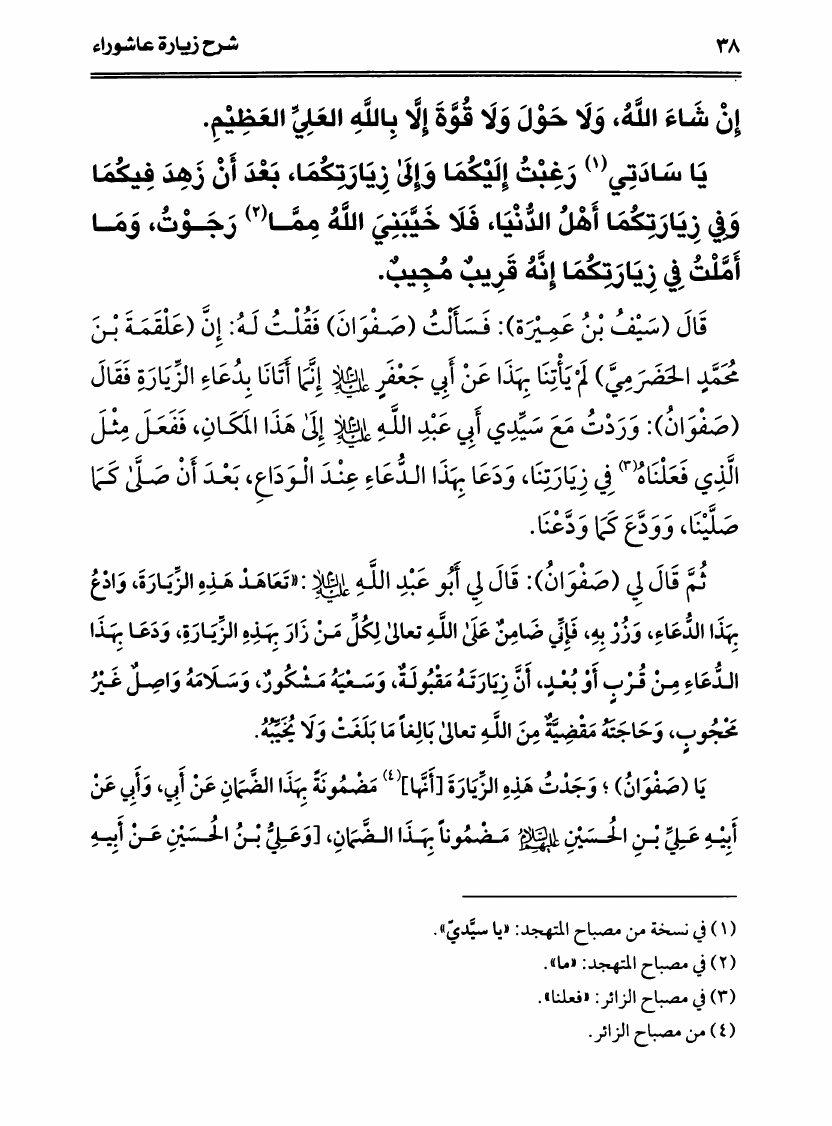 ٣٨
شرح زيارة عاشوراء
إِنْ شَاءَ اللَّهُ، وَلَا حَوْلَ وَلَا قُوَّةَ إِلَّا بِاللَّهِ العَلِيِّ العَظِيْمِ.
يَا سَادَتِي(١) رَغِبْتُ إِلَيْكُمَا وَإِلَىٰ زِيَارَتِكُمَا، بَعْدَ أَنْ زَهِدَ فِيكُمَا
وَفِي زِيَارَتِكُمَا أَهْلُ الدُّنْيَا، فَلَا خَيَّبَنِيَ اللَّهُ مِمَّـا(٢) رَجَـوْتُ، وَمَـا
أَمَّلْتُ فِي زِيَارَتِكُمَا إِنَّهُ قَرِيبٌ مُجِيبٌ.
قَالَ (سَيْفُ بْنُ عَمِيْرَة): فَـسَأَلْتُ (صَـفْوَانَ) فَقُلْـتُ لَـهُ: إِنَّ (عَلْقَمَـةَ بْـنَ
مُحَمَّدٍ الحَضْرَمِيَّ) لَمْ يَأْتِنَا بِهَذَا عَنْ أَبِي جَعْفَرٍ عليه السلام إِنَّمَا أَتَانَا بِدُعَاءِ الزِّيَارَةِ فَقَالَ
(صَفْوَانُ): وَرَدْتُ مَعَ سَيِّدِي أَبِي عَبْدِ اللَّـهِ عليه السلام إِلَىٰ هَذَا المَكَـانِ، فَفَعَـلَ مِثْـلَ
الَّذِي فَعَلْنَاهُ(٣) فِي زِيَارَتِنَا، وَدَعَا بِهَذَا الـدُّعَاءِ عِنْـدَ الْـوَدَاعِ، بَعْـدَ أَنْ صَـلَّىٰ كَـمَا
صَلَّيْنَا، وَوَدَّعَ كَمَا وَدَّعْنَا.
ثُمَّ قَالَ لِي (صَفْوَانُ): قَالَ لِي أَبُو عَبْدِ اللَّـهِ عليه السلام: «تَعَاهَـدْ هَـذِهِ الزِّيَـارَةَ، وَادْعُ
بِهَذَا الدُّعَاءِ، وَزُرْ بِهِ، فَإِنِّي ضَامِنٌ عَلَىٰ اللَّـهِ تعالىٰ لِكُلِّ مَـنْ زَارَ بِهَـذِهِ الزِّيَـارَةِ، وَدَعَـا بِهَـذَا
الـدُّعَاءِ مِـنْ قُـرْبٍ أَوْ بُعْـدٍ، أَنَّ زِيَارَتَـهُ مَقْبُولَـةٌ، وَسَـعْيَهُ مَـشْكُورٌ، وَسَـلَامَهُ وَاصِـلٌ غَـيْرُ
مَحْجُوبٍ، وَحَاجَتَهُ مَقْضِيَّةٌ مِنَ اللَّـهِ تعالىٰ بَالِغاً مَا بَلَغَتْ وَلَا يُخَيِّبُهُ.
يَا (صَفْوَانُ)؛ وَجَدْتُ هَذِهِ الزِّيَارَةَ [أَنَّهَا](٤) مَضْمُونَةً بِهَذَا الضَّمَانِ عَنْ أَبِي، وَأَبِي عَنْ
أَبِيْـهِ عَـلِيِّ بْـنِ الحُـسَيْنِ عليهم السلام مَـضْمُوناً بِهَـذَا الـضَّمَانِ، [وَعَـلِيُّ بْـنُ الحُـسَيْنِ عَـنْ أَبِيـهِ
(١) في نسخة من مصباح المتهجد: «يا سيَّديّ».
(٢) في مصباح المتهجد: «ما».
(٣) في مصباح الزائر: «فعلنا».
(٤) من مصباح الزائر.